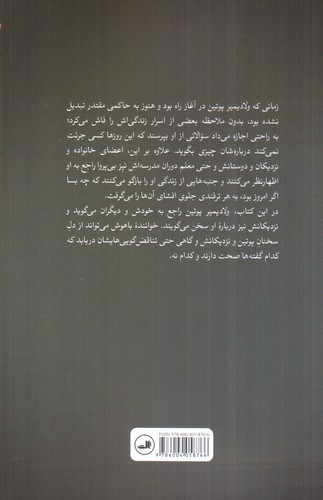 زمانی که ولادیمیر پوتین در آغاز راه بود و هنوز به حاکمی مقتدر تبدیل
نشده بود، بدون ملاحظه بعضی از اسرار زندگی‌اش را فاش می‌کرد؛
به راحتی اجازه می‌داد سؤالاتی از او بپرسند که این روزها کسی جرئت
نمی‌کند درباره‌شان چیزی بگوید. علاوه بر این، اعضای خانواده و
نزدیکان و دوستانش و حتی معلم دوران مدرسه‌اش نیز بی‌پروا راجع به او
اظهارنظر می‌کنند و جنبه‌هایی از زندگی او را بازگو می‌کنند که چه بسا
اگر امروز بود، به هر ترفندی جلوی افشای آن‌ها را می‌گرفت.
در این کتاب، ولادیمیر پوتین راجع به خودش و دیگران می‌گوید و
نزدیکانش نیز دربارهٔ او سخن می‌گویند. خوانندهٔ باهوش می‌تواند از دلِ
سخنان پوتین و نزدیکانش و گاهی حتی تناقض‌گویی‌هایشان دریابد که
کدام گفته‌ها صحت دارند و کدام نه.
ثالث